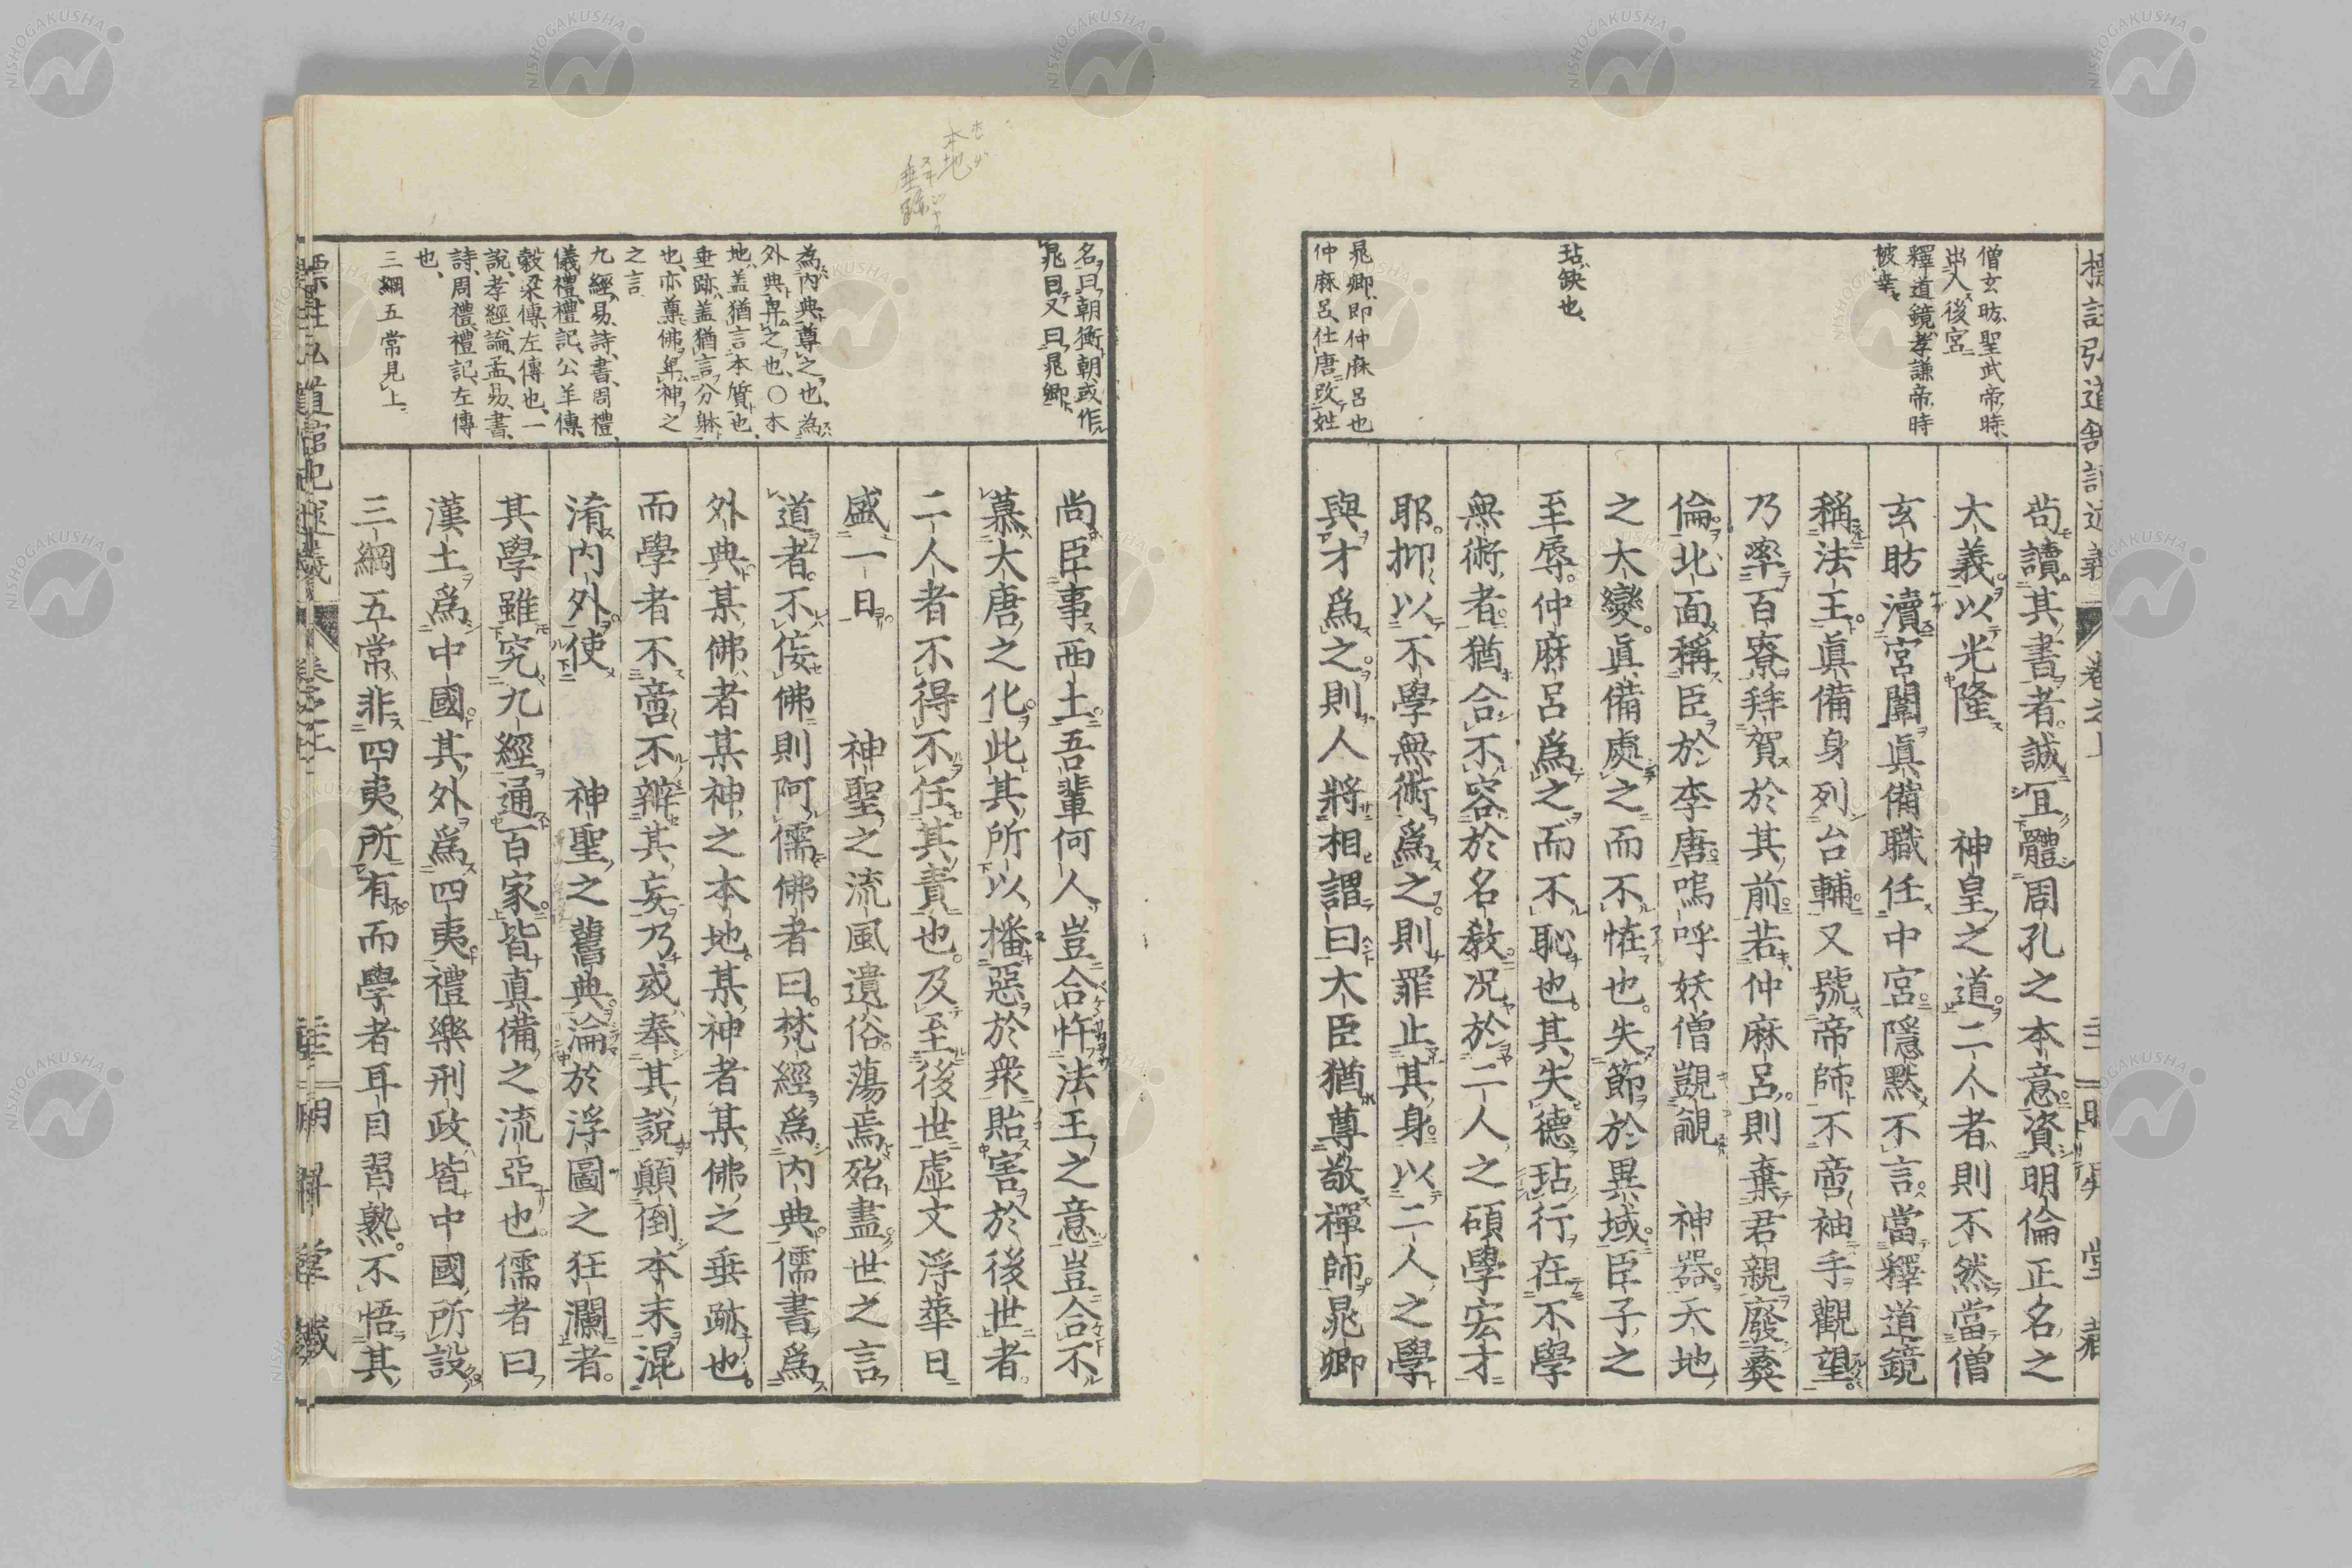 標註弘道館記述義 卷之上
僧玄昉、聖武帝時、
出入後宮
釋道鏡、孝謙帝時
被幸、
玷、缺也、
晁卿、即仲麻呂也
仲麻呂、仕唐改姓
苟讀其書者。誠宜體周孔之本意。資明倫正名之
大義。以光隆 神皇之道。二人者則不然。當僧
玄昉瀆宮闈。眞備職任中宮。隱默不言。當釋道鏡
稱法王。眞備身列台輔。又號帝師。不啻袖手觀望。
乃率百寮拜賀於其前。若仲麻呂。則棄君親廢彜
倫。北面稱臣於李唐。嗚呼妖僧覬覦 神器。天地
之大變。眞備處之而不恠也。失節於異域。臣子之
至辱。仲麻呂爲之而不恥也。其失德玷行在不學
無術者。猶合不容於名敎。況於二人之碩學宏才
耶。抑以不學無術爲之。則罪止其身。以二人之學
與才爲之。則人將相謂曰大臣猶尊敬禪師。晁卿
名曰朝衡、朝或作
晁、曰又曰晁卿、
為内典、尊之也、為
外典、卑之也、○本
地、盖猶言本質也、
垂跡、盖猶言分躰
也、亦菓佛卑神之
之言
九經、易、詩、書、周禮、
儀禮、禮記、公羊傳、
穀梁傳、左傳也、一
說、孝經、論、孟、易、書、
詩、周禮、禮記、左傳
也、
三綱五常見上
尚臣事西土。吾輩何人。豈合忤法王之意。豈合不
慕大唐之化。此其所以播惡於衆貽害於後世者。
二人者不得不任其責也。及至後世虛文浮華日
盛一日。 神聖之流風遺俗。蕩焉殆盡。世之言
道者。不侫佛則阿儒。佛者曰。梵經爲内典。儒書爲
外典。某佛者某神之本地。某神者某佛之垂跡也。
而學者不啻不辨其妄。乃或奉其說。顚倒本末。混
淆内外。使 神聖之舊典。淪於浮圖之狂瀾者。
其學雖究九經通百家。皆真備之流亞也。儒者曰
漢土爲中國。其外爲四夷。禮樂刑政。皆中國所設
三綱五常。非四夷所有。而學者耳目習熟。不悟其